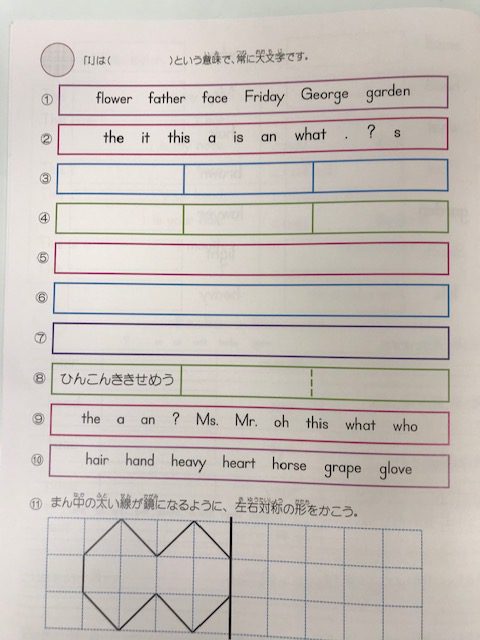 「I」は(　　　　)という意味で、常に大文字です。
① flower father face Friday George garden
② the it this a is an what . ? s
③
④
⑤
⑥
⑦
⑧ ひんこんききせめう
⑨ the a an ? Ms. Mr. oh this what who
⑩ hair hand heavy heart horse grape glove
⑪ まん中の太い線が鏡になるように、左右対称の形をかこう。